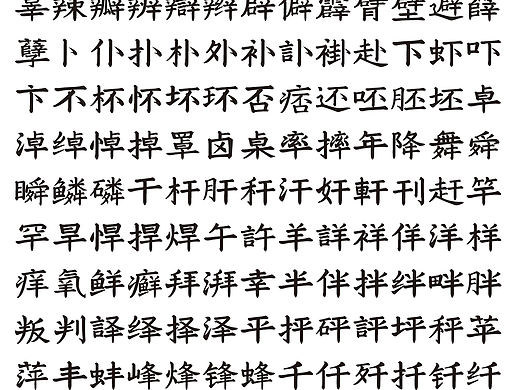 辜辣瓣辨辯辮辟僻霹臂壁避薛
孽卜仆扑朴外补訃褂赴下虾吓
卞不杯怀坏环否痞还呸胚坯卓
淖绰悼掉罩卤桌率摔年降舞舜
瞬鳞磷干杆肝秆汗奸軒刊赶竿
罕旱悍捍焊午許羊詳祥佯洋样
痒氧鲜癣拜湃幸半伴拌绊畔胖
叛判譯绎择泽平抨砰評坪秤苹
萍丰蚌峰烽锋蜂千仟歼扦钎纤